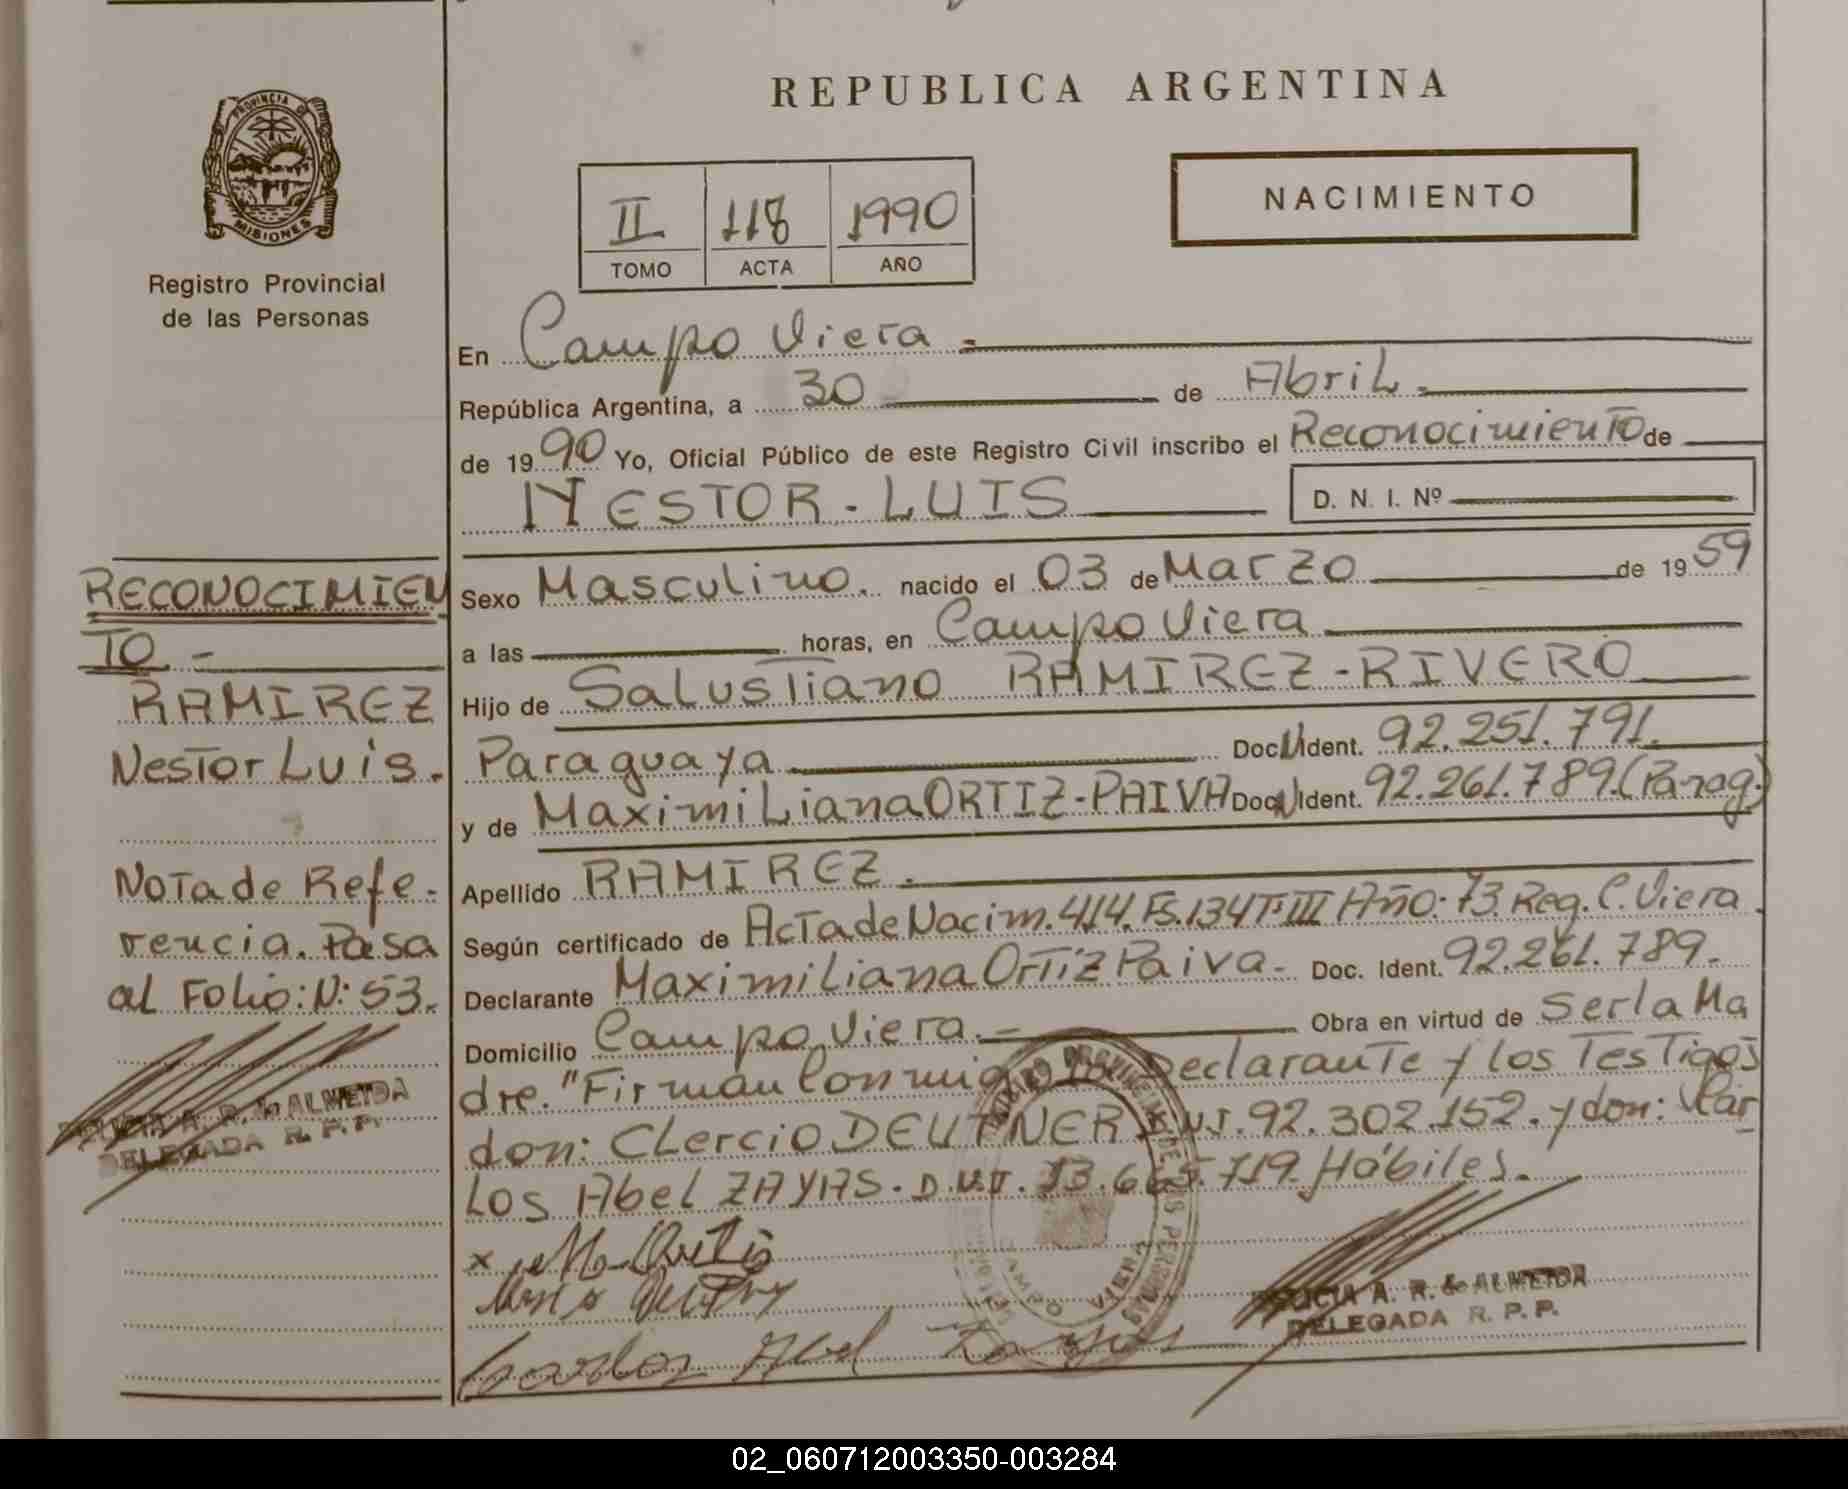 REPUBLICA ARGENTINA
PROVINCIA DE
MISIONES
Registro Provincial
de las Personas
NACIMIENTO
II 118 1990
TOMO ACTA AÑO
En Campo Viera =
República Argentina, a 30 de Abril.
de 1990 Yo, Oficial Público de este Registro Civil inscribo el Reconocimiento de
NESTOR - LUIS
D. N. I. Nº
Sexo Masculino. nacido el 03 de Marzo de 1959
a las horas, en Campo Viera
Hijo de Salustiano RAMIREZ - RIVERO
Paraguaya Doc. Ident. 92.251.791.
y de Maximiliana ORTIZ - PAIVA Doc. Ident. 92.261.789.(Parag.)
Apellido RAMIREZ.
Según certificado de Acta de Nacim. 414. Fs. 134 T: III Año: 73. Reg. C. Viera.
Declarante Maximiliana Ortiz Paiva - Doc. Ident. 92.261.789.
Domicilio Campo Viera. - Obra en virtud de Ser la Ma
dre. "Firman Conmigo la Declarante y los Testigos
don: Clercio DEUTNER D.N.I. 92.302.152. y don: Car
Los Abel ZAYAS. D.N.I. 13.665.719. Hábiles.
x M. Ortiz
Carlos Abel Zayas
CAMPO VIERA
ALICIA A. R. de ALMEIDA
DELEGADA R. P. P.
RECONOCIMIEN
TO -
RAMIREZ
Nestor Luis.
Nota de Refe-
rencia. Pasa
al Folio: N: 53.
ALICIA A. R. de ALMEIDA
DELEGADA R. P. P.
02_060712003350-003284